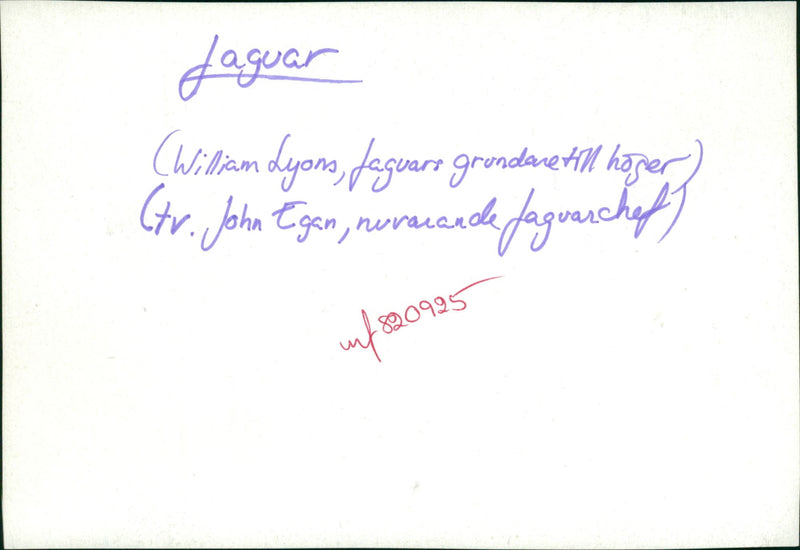 Jaguar
(William Lyons, Jaguars grundare till höger)
(tv. John Egan, nuvarande Jaguarchef)
820925